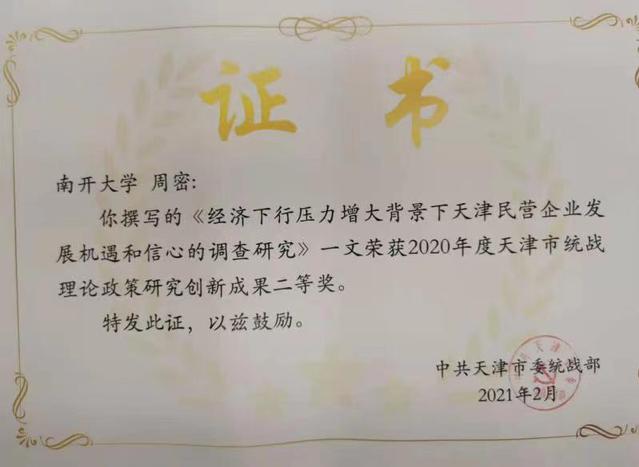 证书
南开大学 周密:
你撰写的《经济下行压力增大背景下天津民营企业发
展机遇和信心的调查研究》一文荣获2020年度天津市统战
理论政策研究创新成果二等奖。
特发此证，以兹鼓励。
中共天津市委统战部
2021年2月